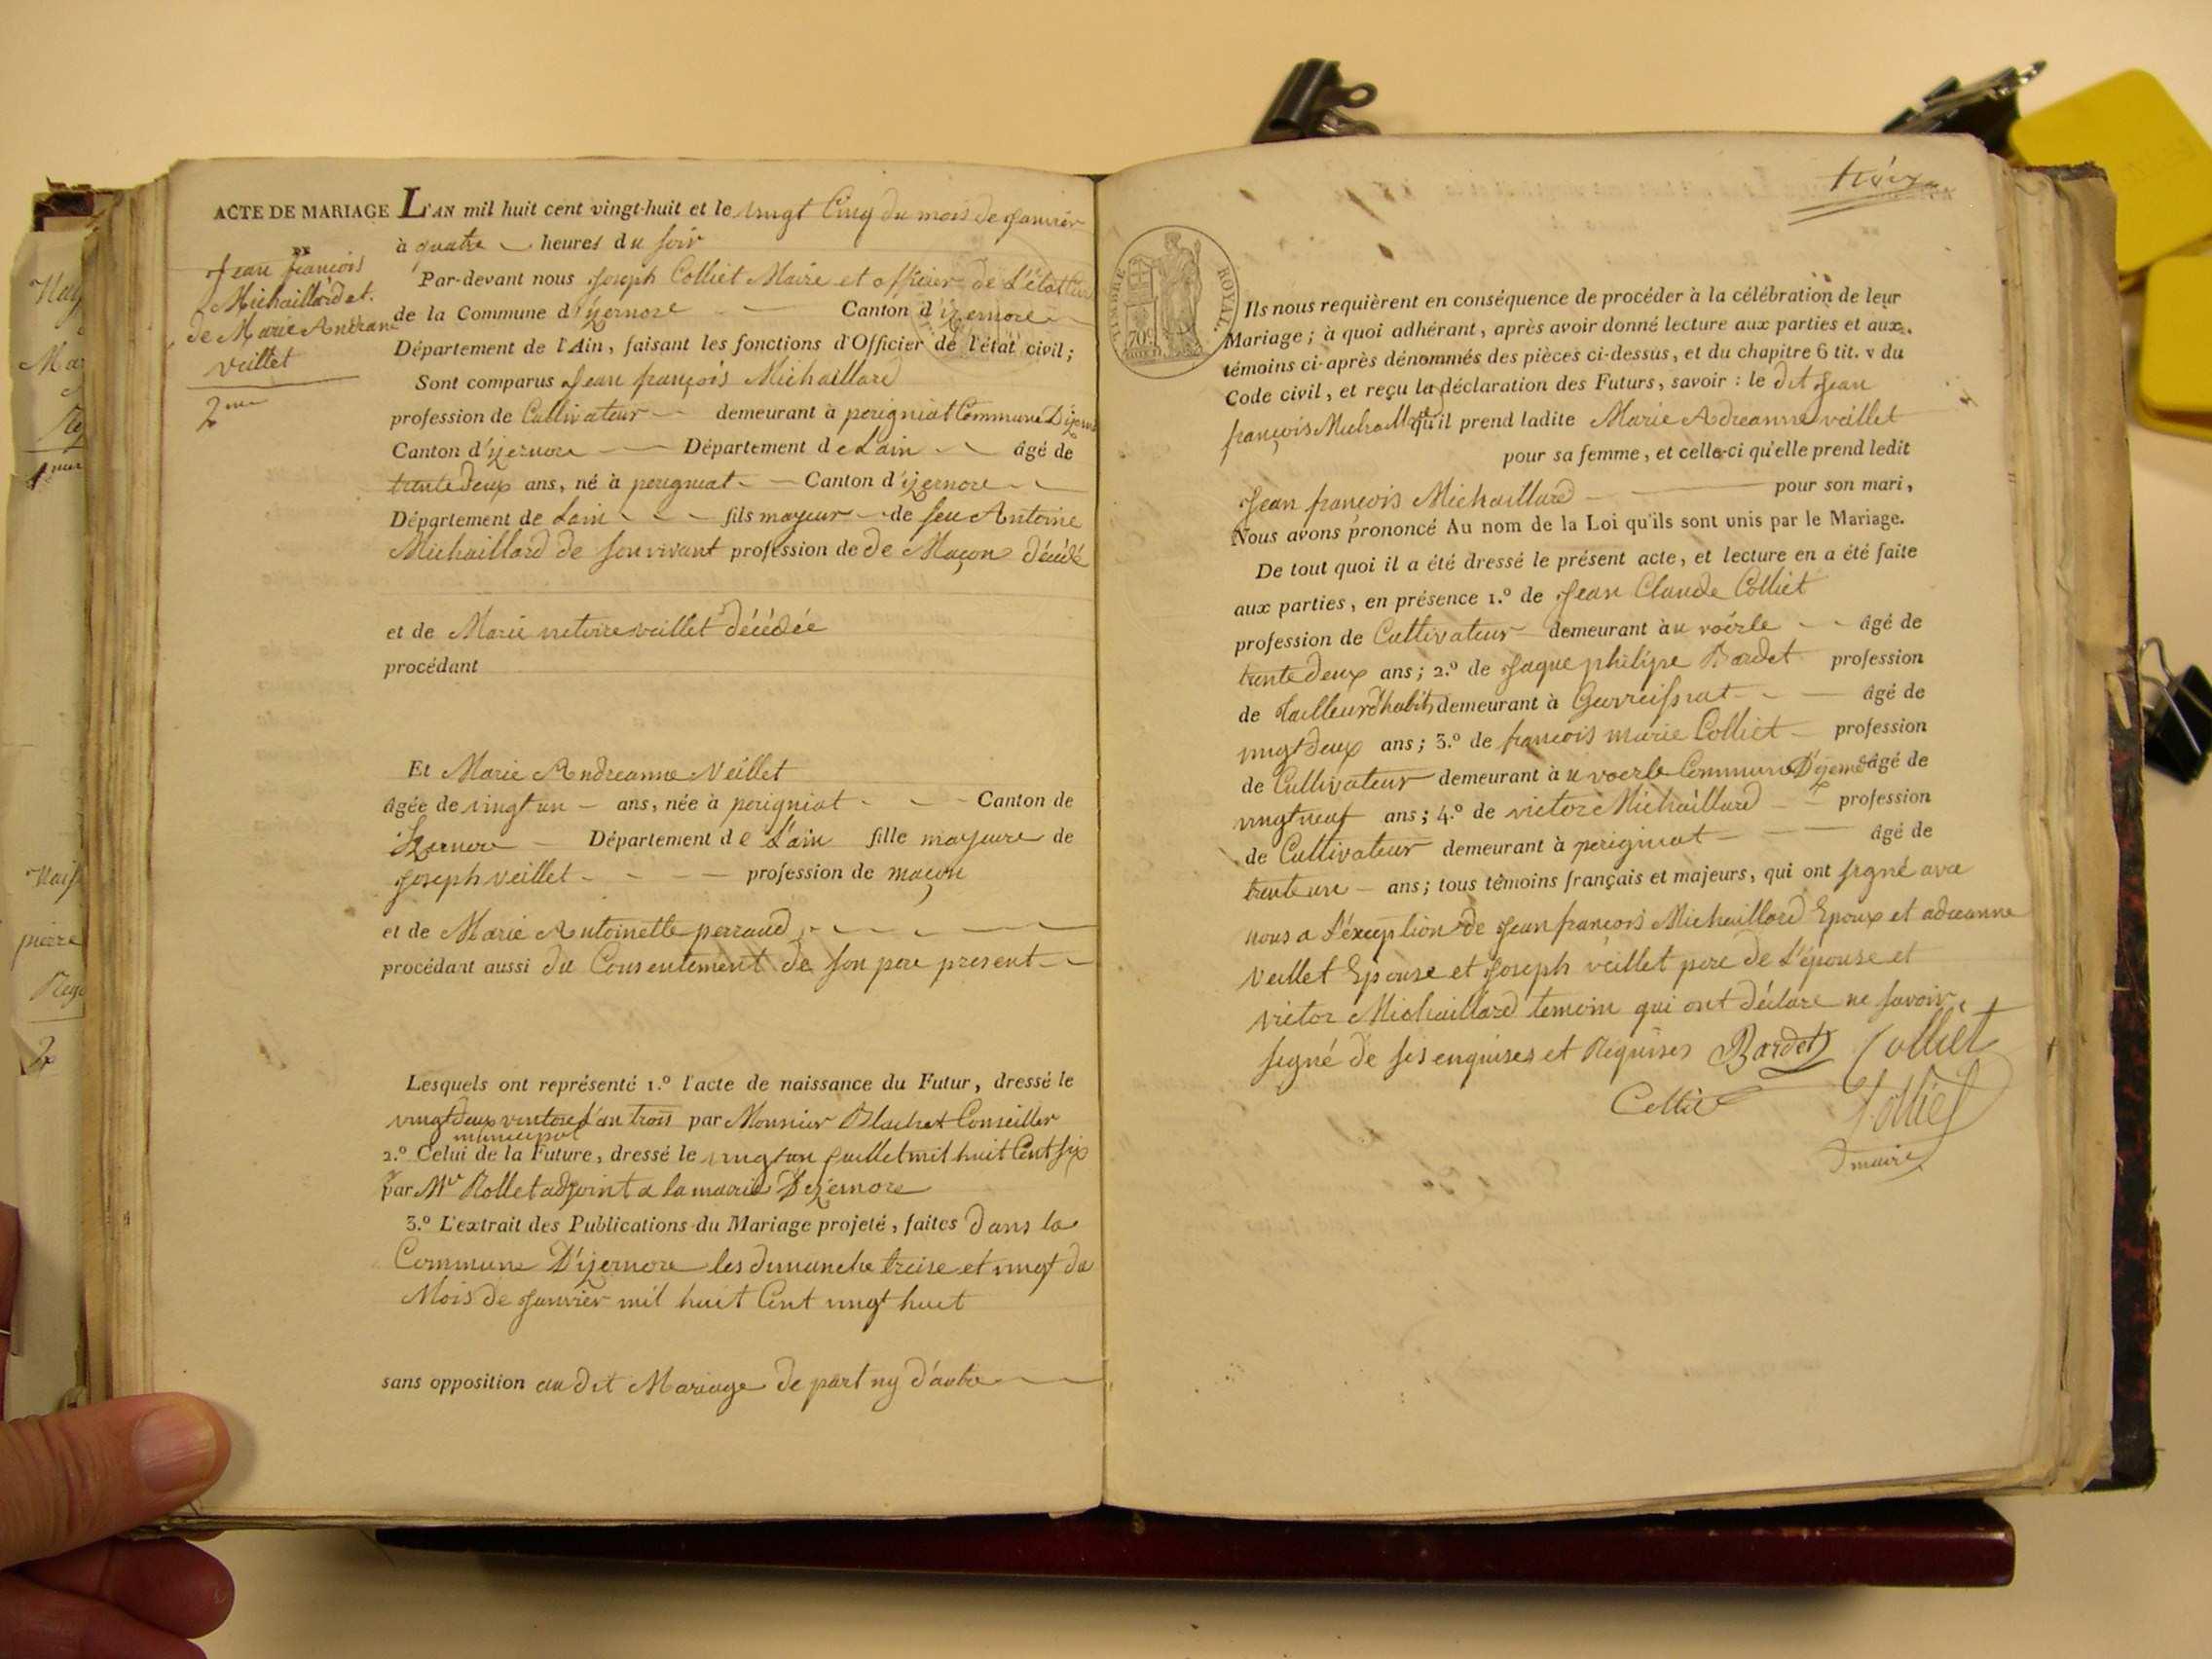 ACTE DE MARIAGE
DE
Jean françois
Michaillard et
de Marie Andreane
veillet
2me
L'AN mil huit cent vingt-huit et le vingt Cinq du mois de Janvier
à quatre heures du soir
Par-devant nous Joseph Colliet Maire et officier de L'état Civil
de la Commune d'izernore Canton d'izernore
Département de l'Ain, faisant les fonctions d'Officier de l'état civil;
Sont comparus Jean françois Michaillard
profession de Cultivateur demeurant à perigniat Commune D'izern
Canton d'izernore Département de Lain âgé de
trente deux ans, né à perigniat Canton d'izernore
Département de Lain fils mayeur de feu Antoine
Michaillard de son vivant profession de de Maçon décédé
et de Marie victoire veillet décédée
procédant
Et Marie Andreanne Veillet
âgée de vingt un ans, née à perigniat Canton de
Izernore Département de L'ain fille mayeure de
Joseph veillet profession de maçon
et de Marie Antoinette perraud
procédant aussi du Consentement de son pere present
Lesquels ont représenté 1.º l'acte de naissance du Futur, dressé le
vingt deux ventose l'an trois par Monsieur Blachet Conseiller
municipal
2.º Celui de la Future, dressé le vingt un Juillet mil huit Cent six
par Mr Rollet adjoint a la mairie D'ezernore
3.º L'extrait des Publications du Mariage projeté, faites dans la
Commune D'izernore les dimanche treise et vingt du
Mois de Janvier mil huit Cent vingt huit
sans opposition au dit Mariage de part ny d'autre
trois
TIMBRE ROYAL
70c
Ils nous requièrent en conséquence de procéder à la célébration de leur
Mariage; à quoi adhérant, après avoir donné lecture aux parties et aux
témoins ci-après dénommés des pièces ci-dessus, et du chapitre 6 tit. v du
Code civil, et reçu la déclaration des Futurs, savoir: le dit Jean
françois Michaillard qu'il prend ladite Marie Adreanne veillet
pour sa femme, et celle-ci qu'elle prend ledit
Jean françois Michaillard pour son mari,
Nous avons prononcé Au nom de la Loi qu'ils sont unis par le Mariage.
De tout quoi il a été dressé le présent acte, et lecture en a été faite
aux parties, en présence 1.º de Jean Claude Colliet
profession de Cultivateur demeurant àu voërle âgé de
trente deux ans; 2.º de Jaque philipe Bardet profession
de Tailleur d'habits demeurant à Gevreissiat âgé de
vingt deux ans; 3.º de françois marie Colliet profession
de Cultivateur demeurant à u voerle Commune D'izern âgé de
vingt neuf ans; 4.º de victor Michaillard profession
de Cultivateur demeurant à perigniat âgé de
trente un ans; tous témoins français et majeurs, qui ont signé avec
nous a l'éxception de Jean françois Michaillard Epoux et adreanne
Veillet Epouse et Joseph veillet pere de L'épouse et
victor Michaillard temoin qui ont déclaré ne savoir
signé de ses enquises et Requises Bardet Colliet
Colliet
J. Colliet
maire